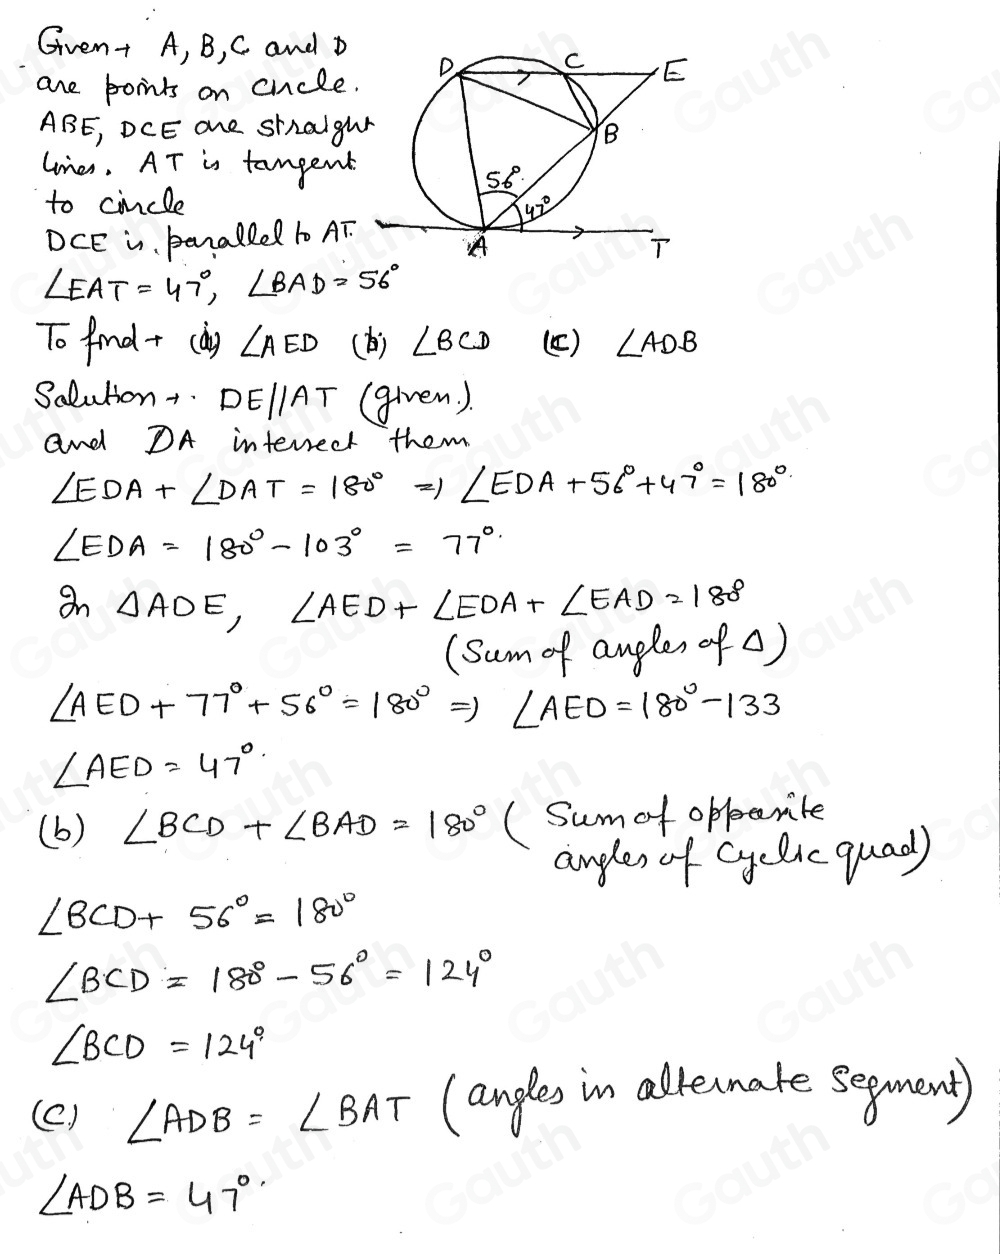 Given → A, B, C and D
are points on circle.
ABE, DCE are straight
lines. AT is tangent
to circle
DCE is parallel to AT.
∠EAT = 47°, ∠BAD = 56°
D C E
B
56°
47°
A T
To find → (a) ∠AED (b) ∠BCD (c) ∠ADB
Solution → DE//AT (given).
and DA intersect them
∠EDA + ∠DAT = 180° ⇒ ∠EDA + 56° + 47° = 180°
∠EDA = 180° - 103° = 77°.
In △ADE, ∠AED + ∠EDA + ∠EAD = 180°
(Sum of angles of △)
∠AED + 77° + 56° = 180° ⇒ ∠AED = 180° - 133
∠AED = 47°.
(b) ∠BCD + ∠BAD = 180° (Sum of opposite
angles of cyclic quad)
∠BCD + 56° = 180°
∠BCD = 180° - 56° = 124°
∠BCD = 124°
(c) ∠ADB = ∠BAT (angles in alternate segment)
∠ADB = 47°.